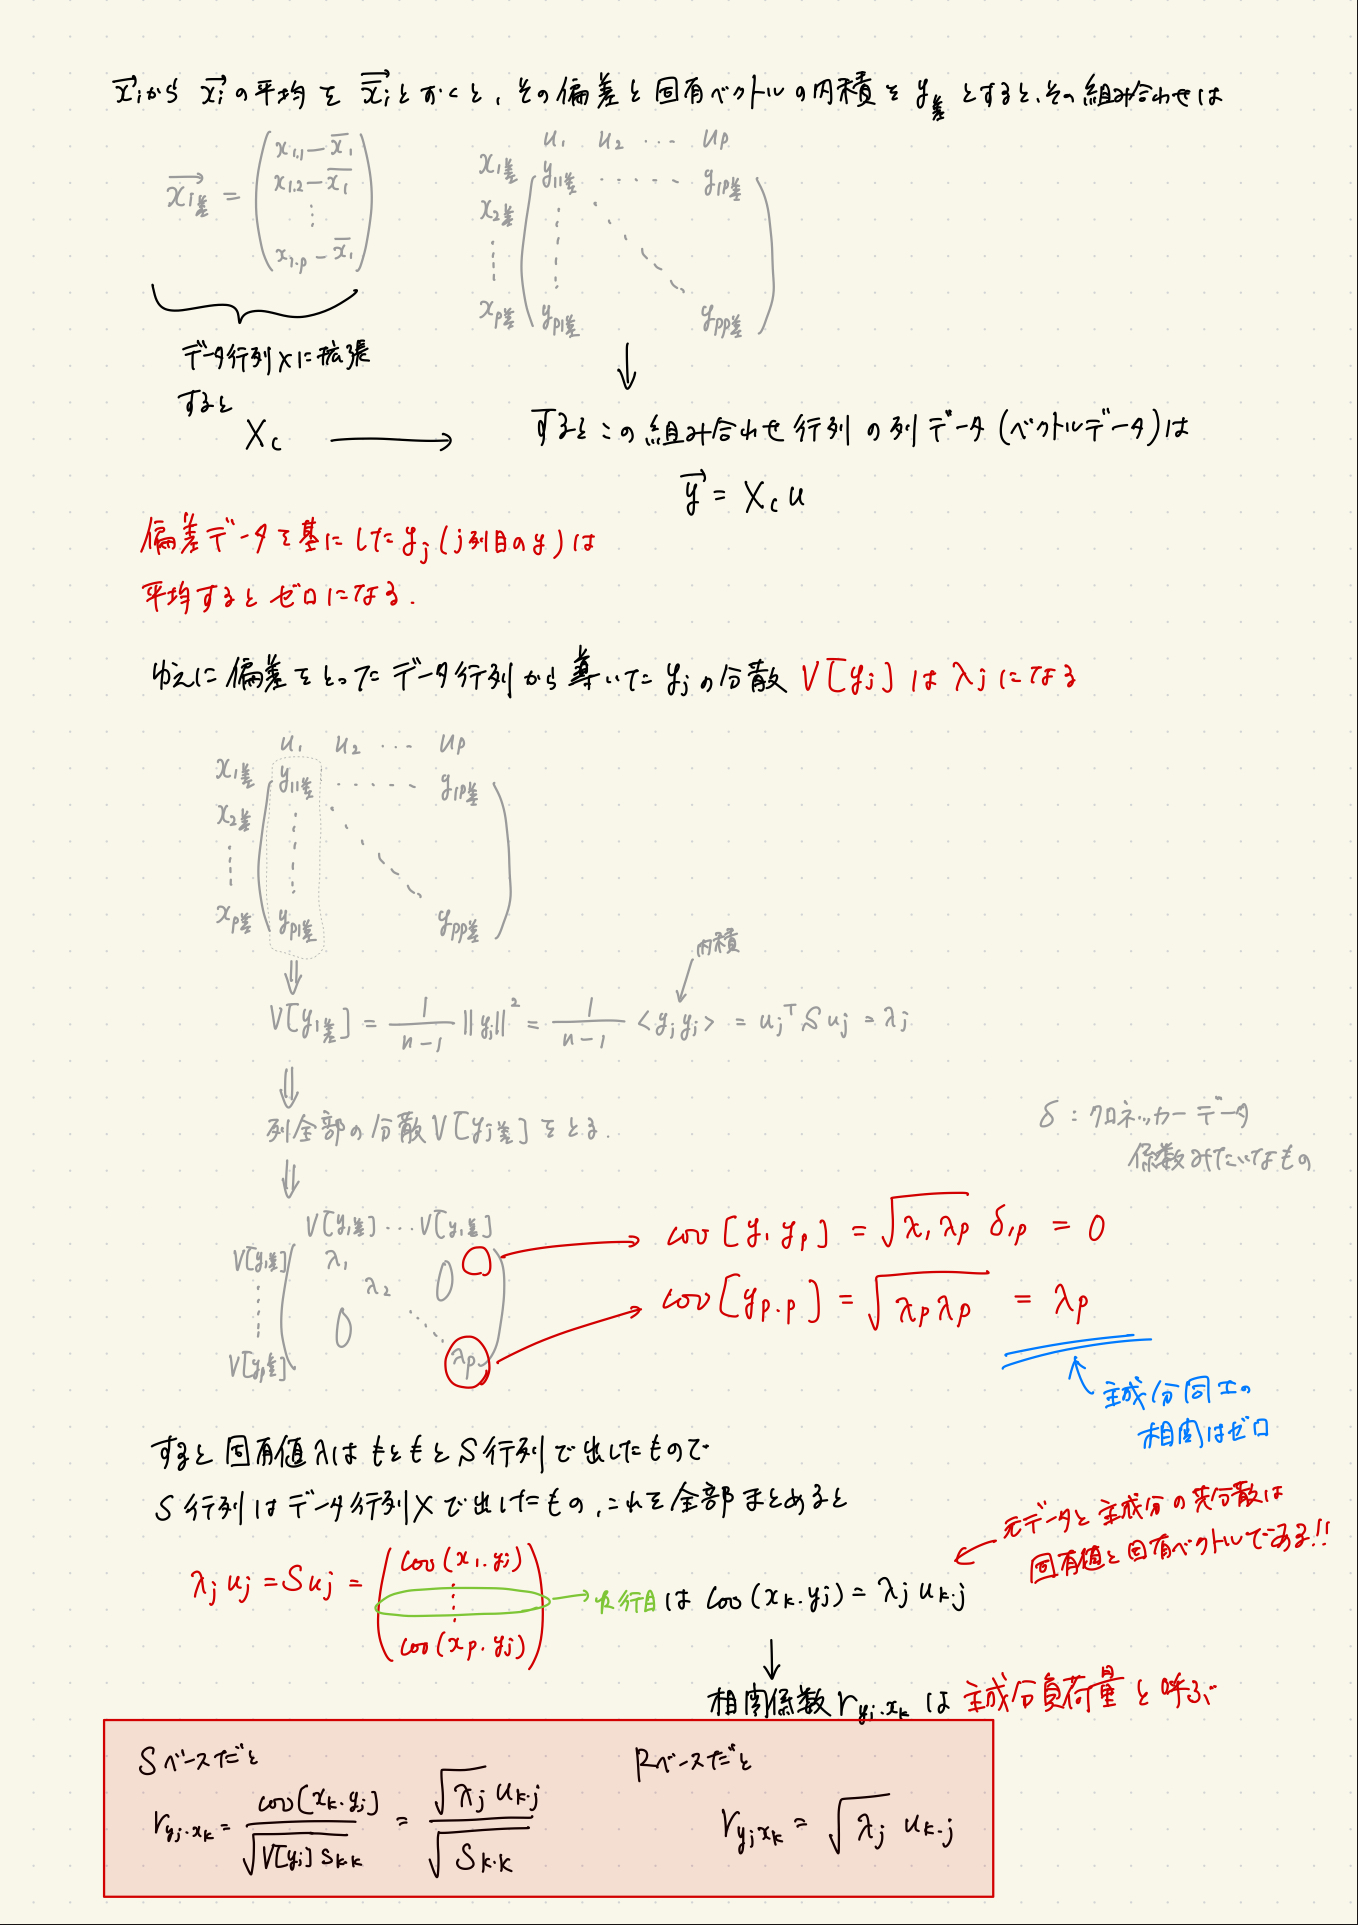 x⃗ᵢから x⃗ᵢの平均を x̄⃗ᵢとおくと、その偏差と固有ベクトルの内積を y差 とすると、その組み合わせは
x⃗₁差 = (x₁.₁−x̄₁ x₁.₂−x̄₁ ⋮ x₁.p−x̄₁)
u₁ u₂ … up
x₁差 y₁₁差 …… y₁p差
x₂差
⋮
xp差 yp₁差 ypp差
データ行列Xに拡張
すると
Xc →
するとこの組み合わせ行列の列データ(ベクトルデータ)は
y⃗ = Xc u
偏差データを基にした yj (j列目のy) は
平均するとゼロになる.
ゆえに偏差をとったデータ行列から導いた yj の分散 V[yj] は λj になる
u₁ u₂ … up
x₁差 y₁₁差 …… y₁p差
x₂差
⋮
xp差 yp₁差 ypp差
内積
V[y₁差] = 1/(n−1) ‖yj‖² = 1/(n−1) <yj yj> = ujᵀ S uj = λj
列全部の分散 V[yj差] をとる.
δ : クロネッカーデータ
係数みたいなもの
V[y₁差] … V[y₁差]
V[y₁差] λ₁ 0
λ₂
⋮ 0
V[yp差] λp
cov [y₁ yp] = √λ₁λp δ₁p = 0
cov [yp.p] = √λpλp = λp
主成分同士の
相関はゼロ
すると固有値λはもともとS行列で出したもので
S行列はデータ行列Xで出したもの、これを全部まとめると
元データと主成分の共分散は
固有値と固有ベクトルである!!
λj uj = S uj = (cov(x₁.yj) ⋮ cov(xp.yj))
k行目 は cov(xk.yj) = λj uk.j
相関係数 ryj.xk は 主成分負荷量と呼ぶ
Sベースだと
ryj.xk = cov(xk.yj) / √V[yj] Sk.k = √λj uk.j / √Sk.k
Rベースだと
ryjxk = √λj uk.j